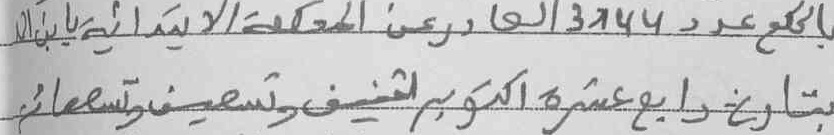 بالحكم عدد 3144 الصادر عن المحكمة الابتدائية بابن
بتاريخ رابع عشرة اكتوبر لثنين وتسعين وتسعمائة